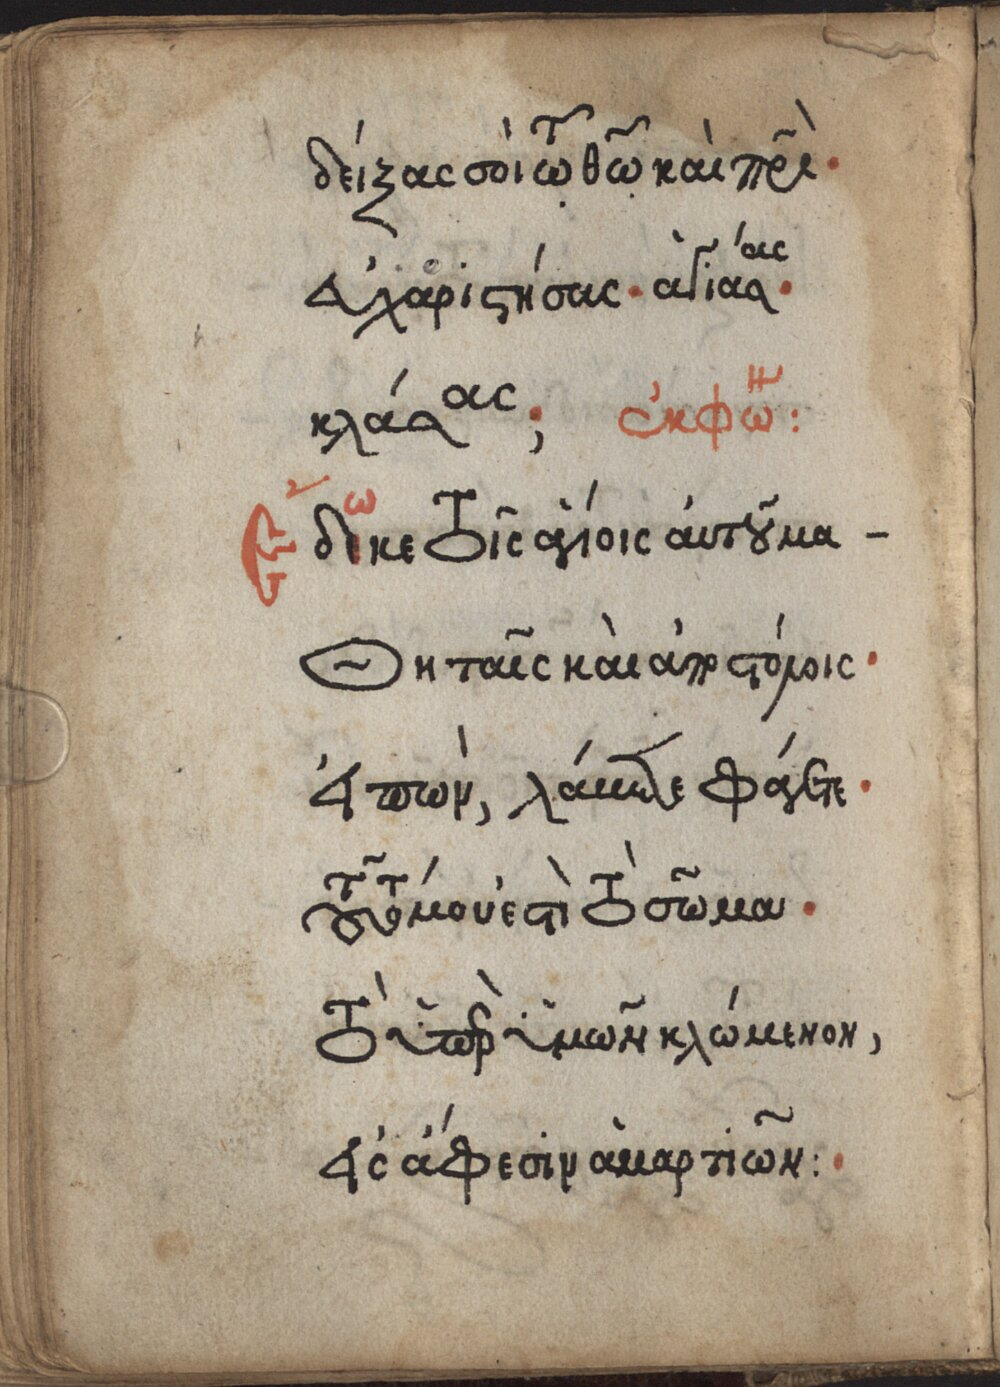 δείξας σοὶ τῶ θῶ καὶ πρὶ·
εὐχαριστήσας· ἁγιάσας·
κλάσας; ἐκφω:
Ἔδωκε τοῖς ἁγίοις αὐτοῦ μα-
θηταῖς καὶ ἀποστόλοις·
εἰπών, λάβετε φάγετε·
τοῦτό μου ἐστὶ τὸ σῶμα·
τὸ ὑπὲρ ὑμῶν κλώμενον,
εἰς ἄφεσιν ἁμαρτιῶν: